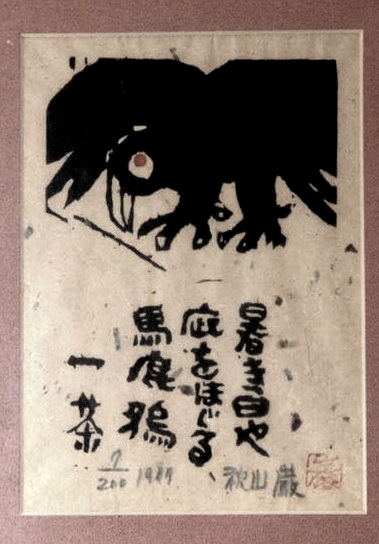 暑き日や
庭をほじる
馬鹿鴉
一茶
7/200
秋山巌